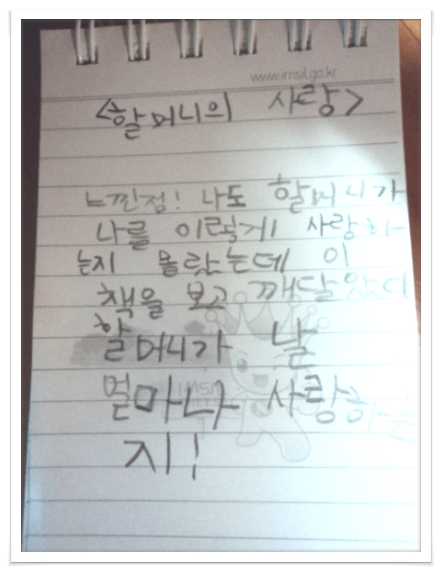 www.imsil.go.kr
<할머니의 사랑>
느낀점! 나도 할머니가
나를 이렇게 사랑하
는지 몰랐는데 이
책을 보고 깨달았다
할머니가 날
얼마나 사랑하는
지!
IMSIL